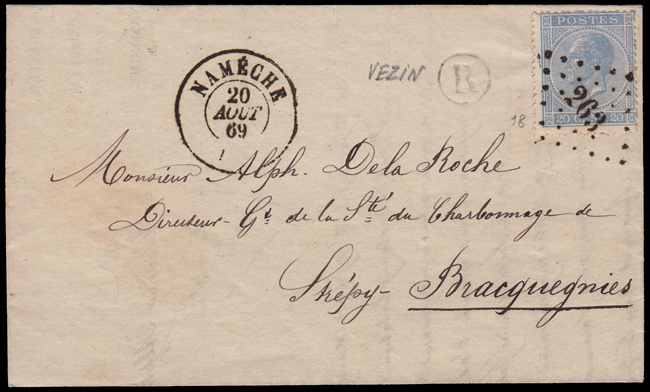 POSTES
NAMÊCHE
20
AOUT
69
VEZIN
R
263
20 C 20
18
Monsieur Alph. Dela Roche
Directeur-Gᵗ de la Sᵗᵉ du Charbonnage de
Strépy-Bracquegnies